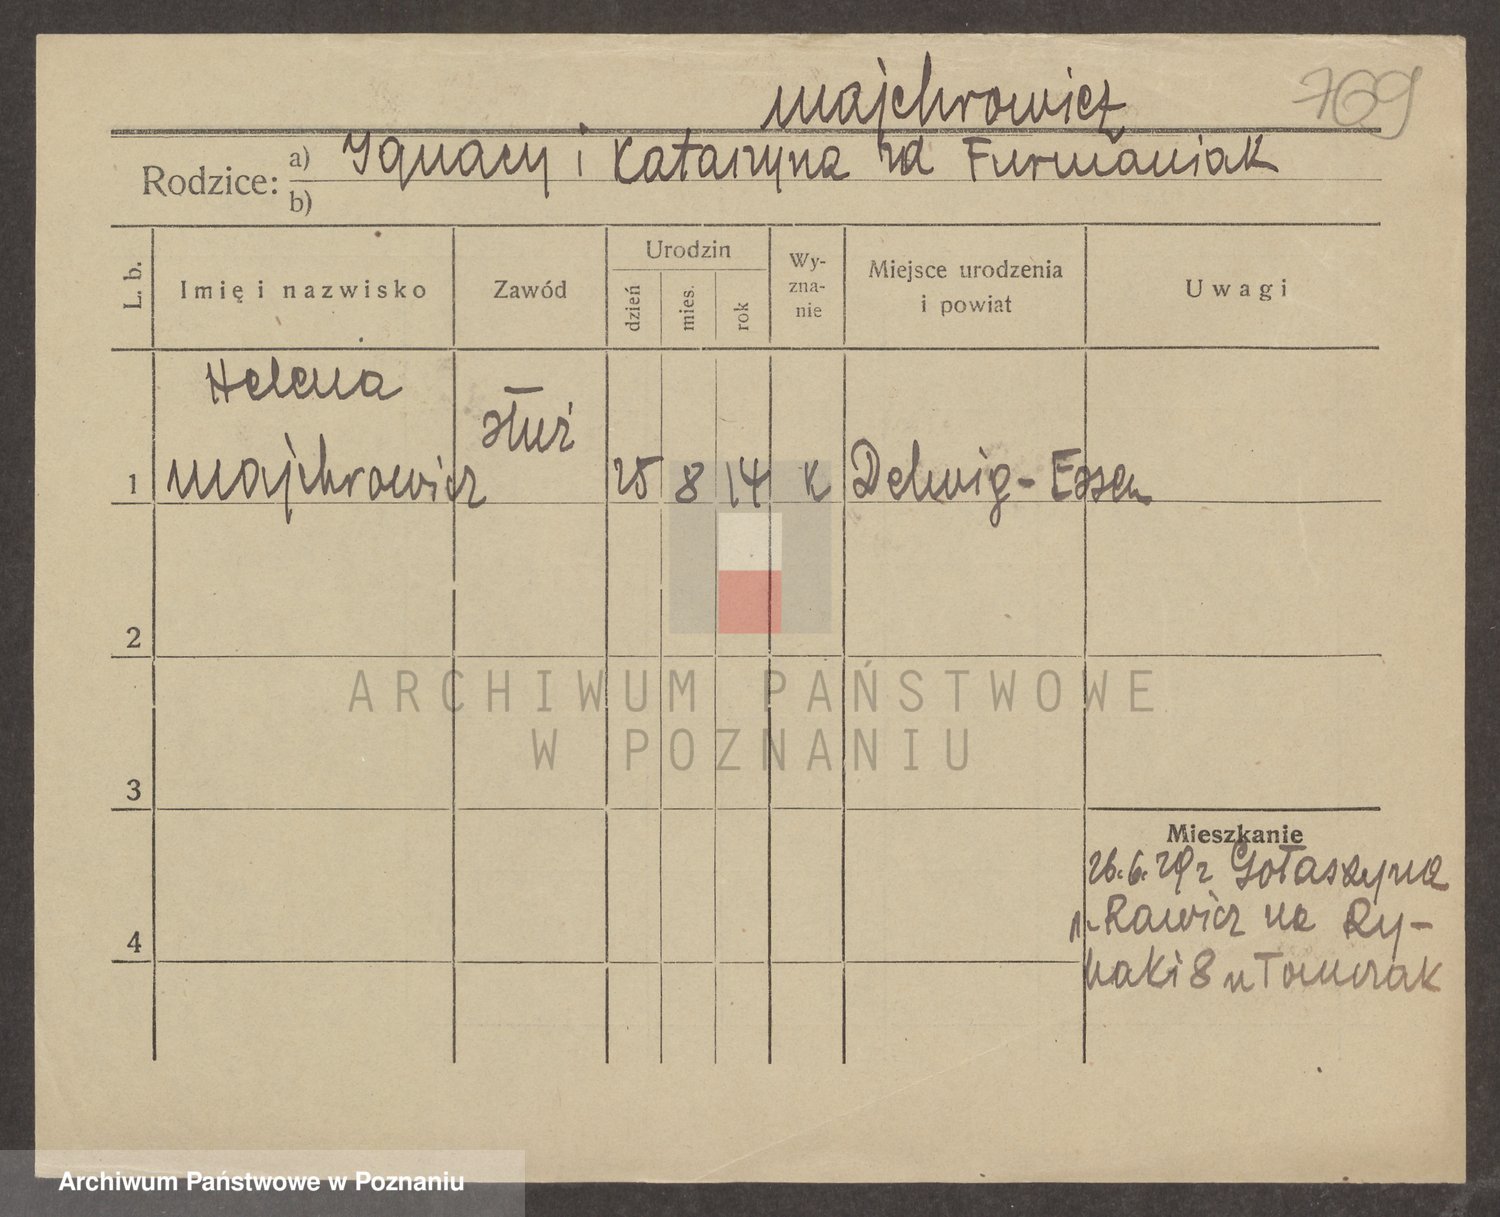 Majchrowicz 769
Rodzice: a) Ignacy i Katarzyna zd Furmaniak
b)
L. b. Imię i nazwisko Zawód Urodzin dzień mies. rok Wy-zna-nie Miejsce urodzenia i powiat Uwagi
Helena
służ
1 Majchrowicz 25 8 14 k Delwig-Essen
2
3
Mieszkanie
26.6.29r Gołaszyna
Rawicz na Ry-
4
baki 8 u Tomczak
ARCHIWUM PAŃSTWOWE
W POZNANIU
Archiwum Państwowe w Poznaniu